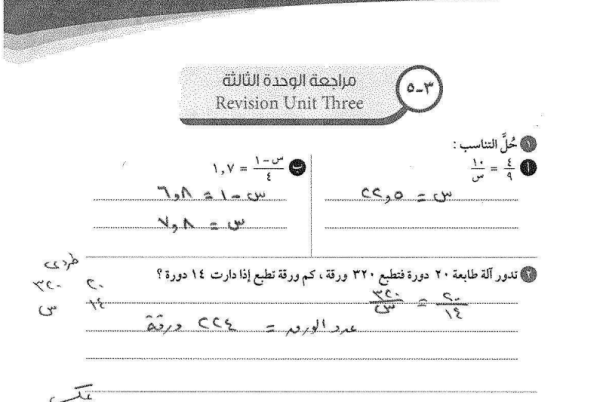 مراجعة الوحدة الثالثة
Revision Unit Three
٣-٥
١ حُلَّ التناسب :
أ ٤/٩ = ١٠/س
ب س-١/٤ = ١,٧
س = ٢٢,٥
س - ١ = ٦,٨
س = ٧,٨
طردي
٢ تدور آلة طابعة ٢٠ دورة فتطبع ٣٢٠ ورقة ، كم ورقة تطبع إذا دارت ١٤ دورة ؟
٢٠ ٣٢٠
١٤ س
٢٠/١٤ = ٣٢٠/س
عدد الورق = ٢٢٤ ورقة